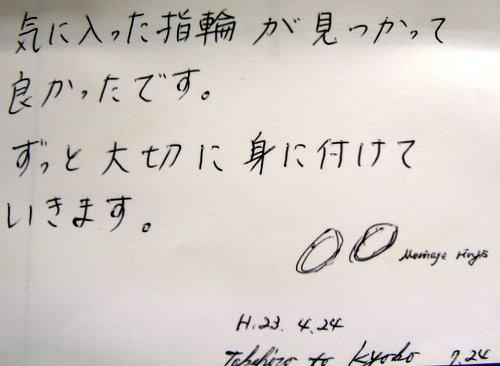 気に入った指輪が見つかって
良かったです。
ずっと大切に身に付けて
いきます。
Marriage rings
H.23. 4.24
Takehiro to Kyoko 7.24